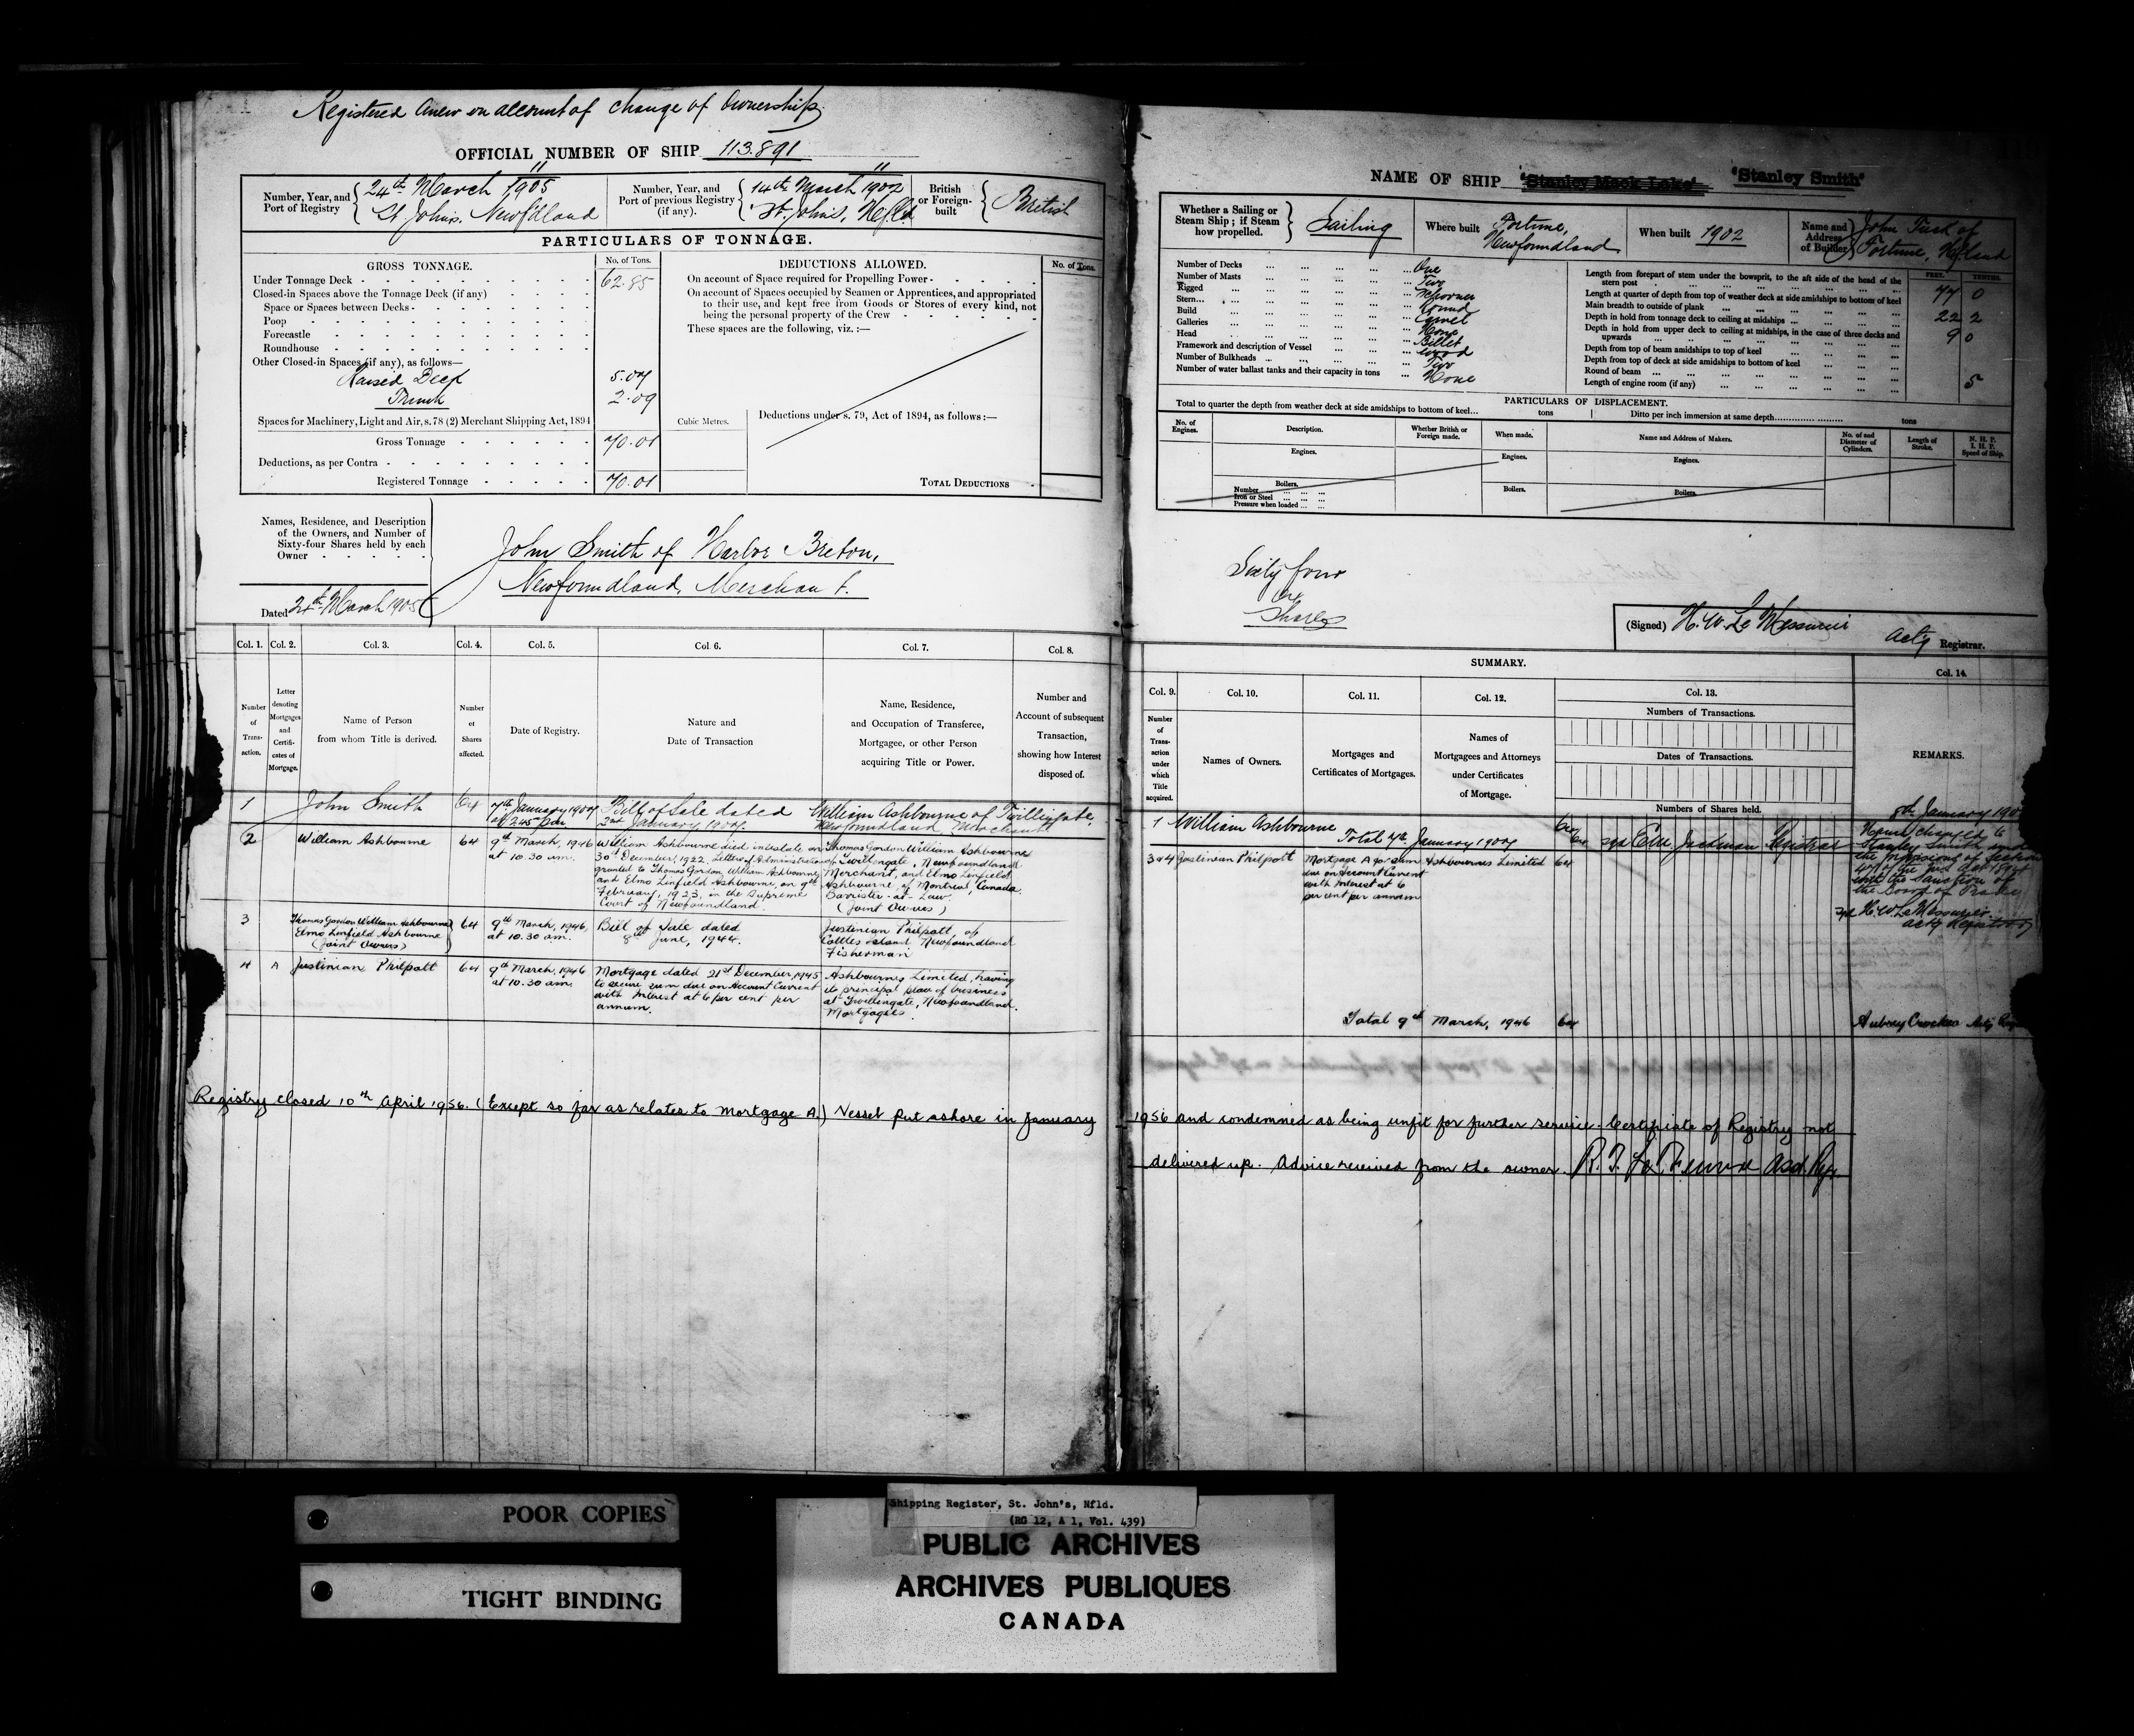 Registered Anew on account of change of Ownership.
OFFICIAL NUMBER OF SHIP 113.891
Number, Year, and Port of Registry
24th March 1905
St. John's. Newfdland
Number, Year, and Port of previous Registry (if any).
14th March 1902
St. John's, Nfld
British or Foreign-built
British
PARTICULARS OF TONNAGE.
GROSS TONNAGE.
No. of Tons.
Under Tonnage Deck 62.85
Closed-in Spaces above the Tonnage Deck (if any)
Space or Spaces between Decks
Poop
Forecastle
Roundhouse
Other Closed-in Spaces (if any), as follows—
Raised Deck 5.07
Trunk 2.09
Spaces for Machinery, Light and Air, s. 78 (2) Merchant Shipping Act, 1894
Gross Tonnage 70.01
Deductions, as per Contra
Registered Tonnage 70.01
Cubic Metres.
DEDUCTIONS ALLOWED.
No. of Tons.
On account of Space required for Propelling Power
On account of Spaces occupied by Seamen or Apprentices, and appropriated
to their use, and kept free from Goods or Stores of every kind, not
being the personal property of the Crew
These spaces are the following, viz. :—
Deductions under s. 79, Act of 1894, as follows :—
TOTAL DEDUCTIONS
Names, Residence, and Description
of the Owners, and Number of
Sixty-four Shares held by each
Owner
John Smith of Harbor Breton,
Newfoundland, Merchant.
Dated 24th March 1905
Col. 1. Col. 2. Col. 3. Col. 4. Col. 5. Col. 6. Col. 7. Col. 8.
Number of Transaction.
Letter denoting Mortgages and Certificates of Mortgage.
Name of Person from whom Title is derived.
Number of Shares affected.
Date of Registry.
Nature and Date of Transaction
Name, Residence, and Occupation of Transferee, Mortgagee, or other Person acquiring Title or Power.
Number and Account of subsequent Transaction, showing how Interest disposed of.
1 John Smith 64 7th January 1907 at 2.45 pm
Bill of Sale dated
2nd January, 1907.
William Ashbourne of Twillingate,
Newfoundland Merchant
2 William Ashbourne 64 9th March, 1946
at 10.30 am.
William Ashbourne died intestate on
30th December, 1922. Letters of Administration
granted to Thomas Gordon William Ashbourne
and Elmo Linfield Ashbourne, on 9th
February, 1923, in the Supreme
Court of Newfoundland.
Thomas Gordon William Ashbourne
of Twillingate, Newfoundland
Merchant, and Elmo Linfield
Ashbourne, of Montreal, Canada.
Barrister-at-Law.
(Joint Owners)
3 Thomas Gordon William Ashbourne
Elmo Linfield Ashbourne
(Joint Owners)
64 9th March, 1946,
at 10.30 am.
Bill of Sale dated
8th June, 1944.
Justinian Philpott, of
Cottles Island Newfoundland
Fisherman
4 A Justinian Philpott 64 9th March, 1946
at 10.30 am.
Mortgage dated 21st December, 1945
to secure sum due on Account Current
with Interest at 6 per cent per
annum.
Ashbournes Limited, having
its principal place of business
at Twillingate, Newfoundland.
Mortgagees.
Registry closed 10th April 1956. (Except so far as relates to Mortgage A.) Vessel put ashore in January
NAME OF SHIP "Stanley Mack Lake" "Stanley Smith"
Whether a Sailing or Steam Ship ; if Steam how propelled.
Sailing
Where built Fortune,
Newfoundland
When built 1902
Name and Address of Builder
John
of
Fortune, Nfland
Number of Decks One
Number of Masts Two
Rigged Schooner
Stern Round
Build Carvel
Galleries None
Head Billet
Framework and description of Vessel Wood
Number of Bulkheads Two
Number of water ballast tanks and their capacity in tons None
FEET. TENTHS.
Length from forepart of stem under the bowsprit, to the aft side of the head of the
stern post 77 0
Length at quarter of depth from top of weather deck at side amidships to bottom of keel
Main breadth to outside of plank 22 2
Depth in hold from tonnage deck to ceiling at midships 9 0
Depth in hold from upper deck to ceiling at midships, in the case of three decks and
upwards
Depth from top of beam amidships to top of keel
Depth from top of deck at side amidships to bottom of keel
Round of beam 5
Length of engine room (if any)
PARTICULARS OF DISPLACEMENT.
Total to quarter the depth from weather deck at side amidships to bottom of keel tons
Ditto per inch immersion at same depth tons
No. of Engines.
Description.
Whether British or Foreign made.
When made.
Name and Address of Makers.
No. of and Diameter of Cylinders.
Length of Stroke.
N. H. P.
I. H. P.
Speed of Ship.
Engines. Engines. Engines.
Boilers. Boilers. Boilers.
Number
Iron or Steel
Pressure when loaded
Sixty four
Shares
(Signed) H. W. Le Messurier
Actg Registrar.
SUMMARY.
Col. 9. Col. 10. Col. 11. Col. 12. Col. 13. Col. 14.
Number of Transaction under which Title acquired.
Names of Owners.
Mortgages and Certificates of Mortgages.
Names of Mortgagees and Attorneys under Certificates of Mortgage.
Numbers of Transactions.
Dates of Transactions.
Numbers of Shares held.
REMARKS.
1 William Ashbourne 64
Total 7th January 1907 64
Registrar
January
Name changed to
Stanley Smith under
the provisions of Section
the Board of Trade
H. W. Le Messurier
Actg Registrar
3 & 4 Justinian Philpott
Mortgage A for sum
due on Account Current
with Interest at 6
per cent per annum
Ashbournes Limited 64
Total 9th March, 1946 64
Aubrey Crocker Actg
1956 and condemned as being unfit for further service. Certificate of Registry not
delivered up. Advice received from the owner.
POOR COPIES
TIGHT BINDING
Shipping Register, St. John's, Nfld.
(RG 12, A 1, Vol. 439)
PUBLIC ARCHIVES
ARCHIVES PUBLIQUES
CANADA